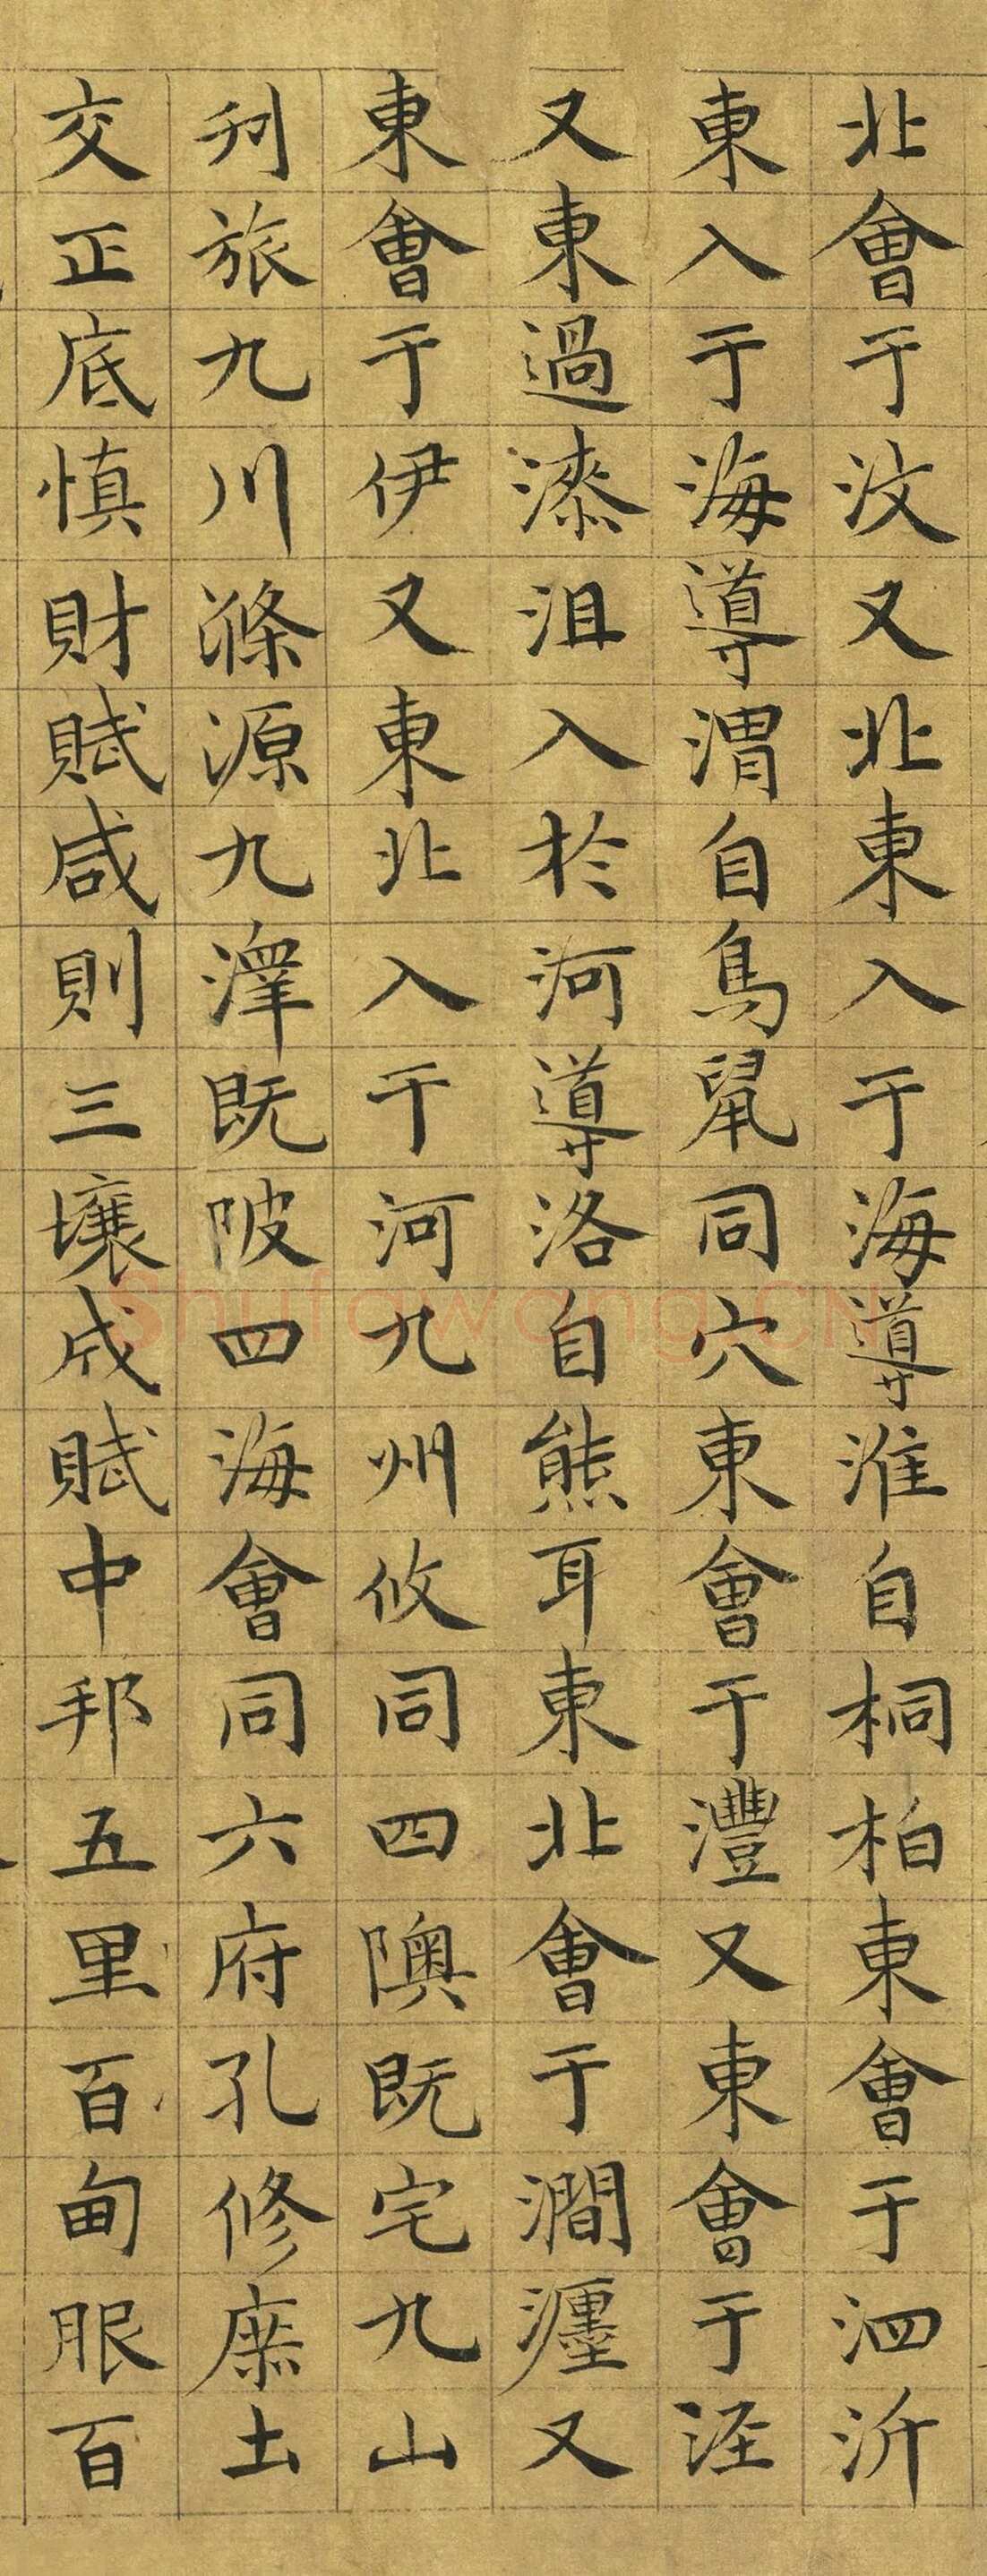 北會于汶又北東入于海導淮自桐柏東會于泗沂
東入于海導渭自鳥鼠同穴東會于灃又東會于泾
又東過漆沮入於河導洛自熊耳東北會于澗瀍又
東會于伊又東北入于河九州攸同四隩既宅九山
刋旅九川滌源九澤既陂四海會同六府孔修庶土
交正底慎財賦咸則三壤成賦中邦五里百甸服百
Shufawang.CN